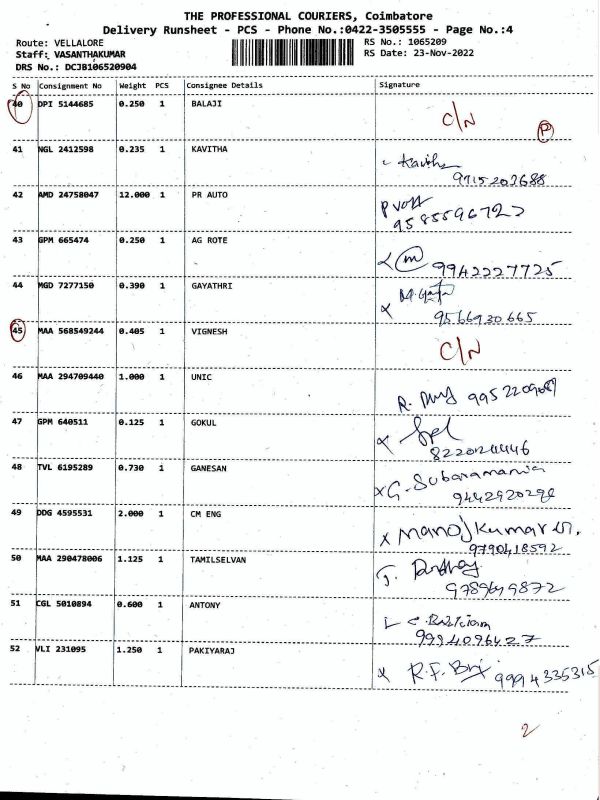 THE PROFESSIONAL COURIERS, Coimbatore
Delivery Runsheet - PCS - Phone No.:0422-3505555 - Page No.:4
Route: VELLALORE RS No.: 1065209
Staff: VASANTHAKUMAR RS Date: 23-Nov-2022
DRS No.: DCJB106520904
S No Consignment No Weight PCS Consignee Details Signature
40 DPI 5144685 0.250 1 BALAJI
C/N P
41 NGL 2412598 0.235 1 KAVITHA
Kavitha
9715203688
42 AMD 24758047 12.000 1 PR AUTO
43 GPM 665474 0.250 1 AG ROTE
9942227725
44 MGD 7277150 0.390 1 GAYATHRI
9566930665
45 MAA 568549244 0.405 1 VIGNESH
C/N
46 MAA 294709440 1.000 1 UNIC
47 GPM 640511 0.125 1 GOKUL
8220124446
48 TVL 6195289 0.730 1 GANESAN
G. Subaramania
49 DDG 4595531 2.000 1 CM ENG
Manoj Kumar
9790418592
50 MAA 290478006 1.125 1 TAMILSELVAN
9789649872
51 CGL 5010894 0.600 1 ANTONY
9994096427
52 VLI 231095 1.250 1 PAKIYARAJ
9994335315
2